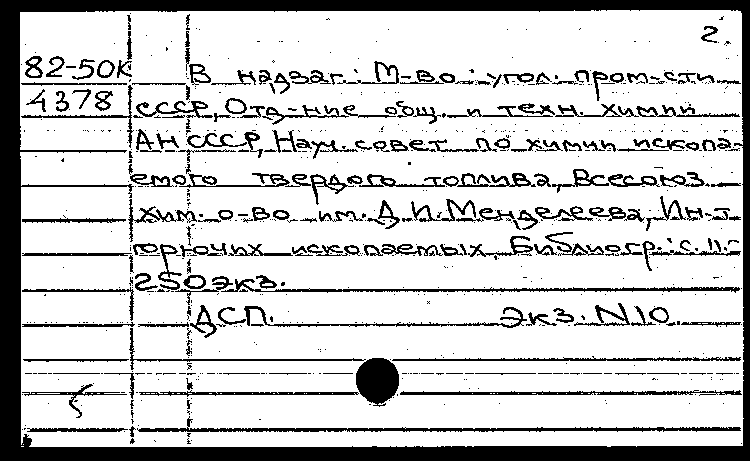 2.
82-50К В надзаг.: М-во угол. пром-сти
4378 СССР, Отд-ние общ. и техн. химии
АН СССР, Науч. совет по химии ископа-
емого твердого топлива, Всесоюз.
хим. о-во им. Д.И. Менделеева, Ин-т
горючих ископаемых. Библиогр.: с. 11.-
250 экз.
ДСП. Экз. N10